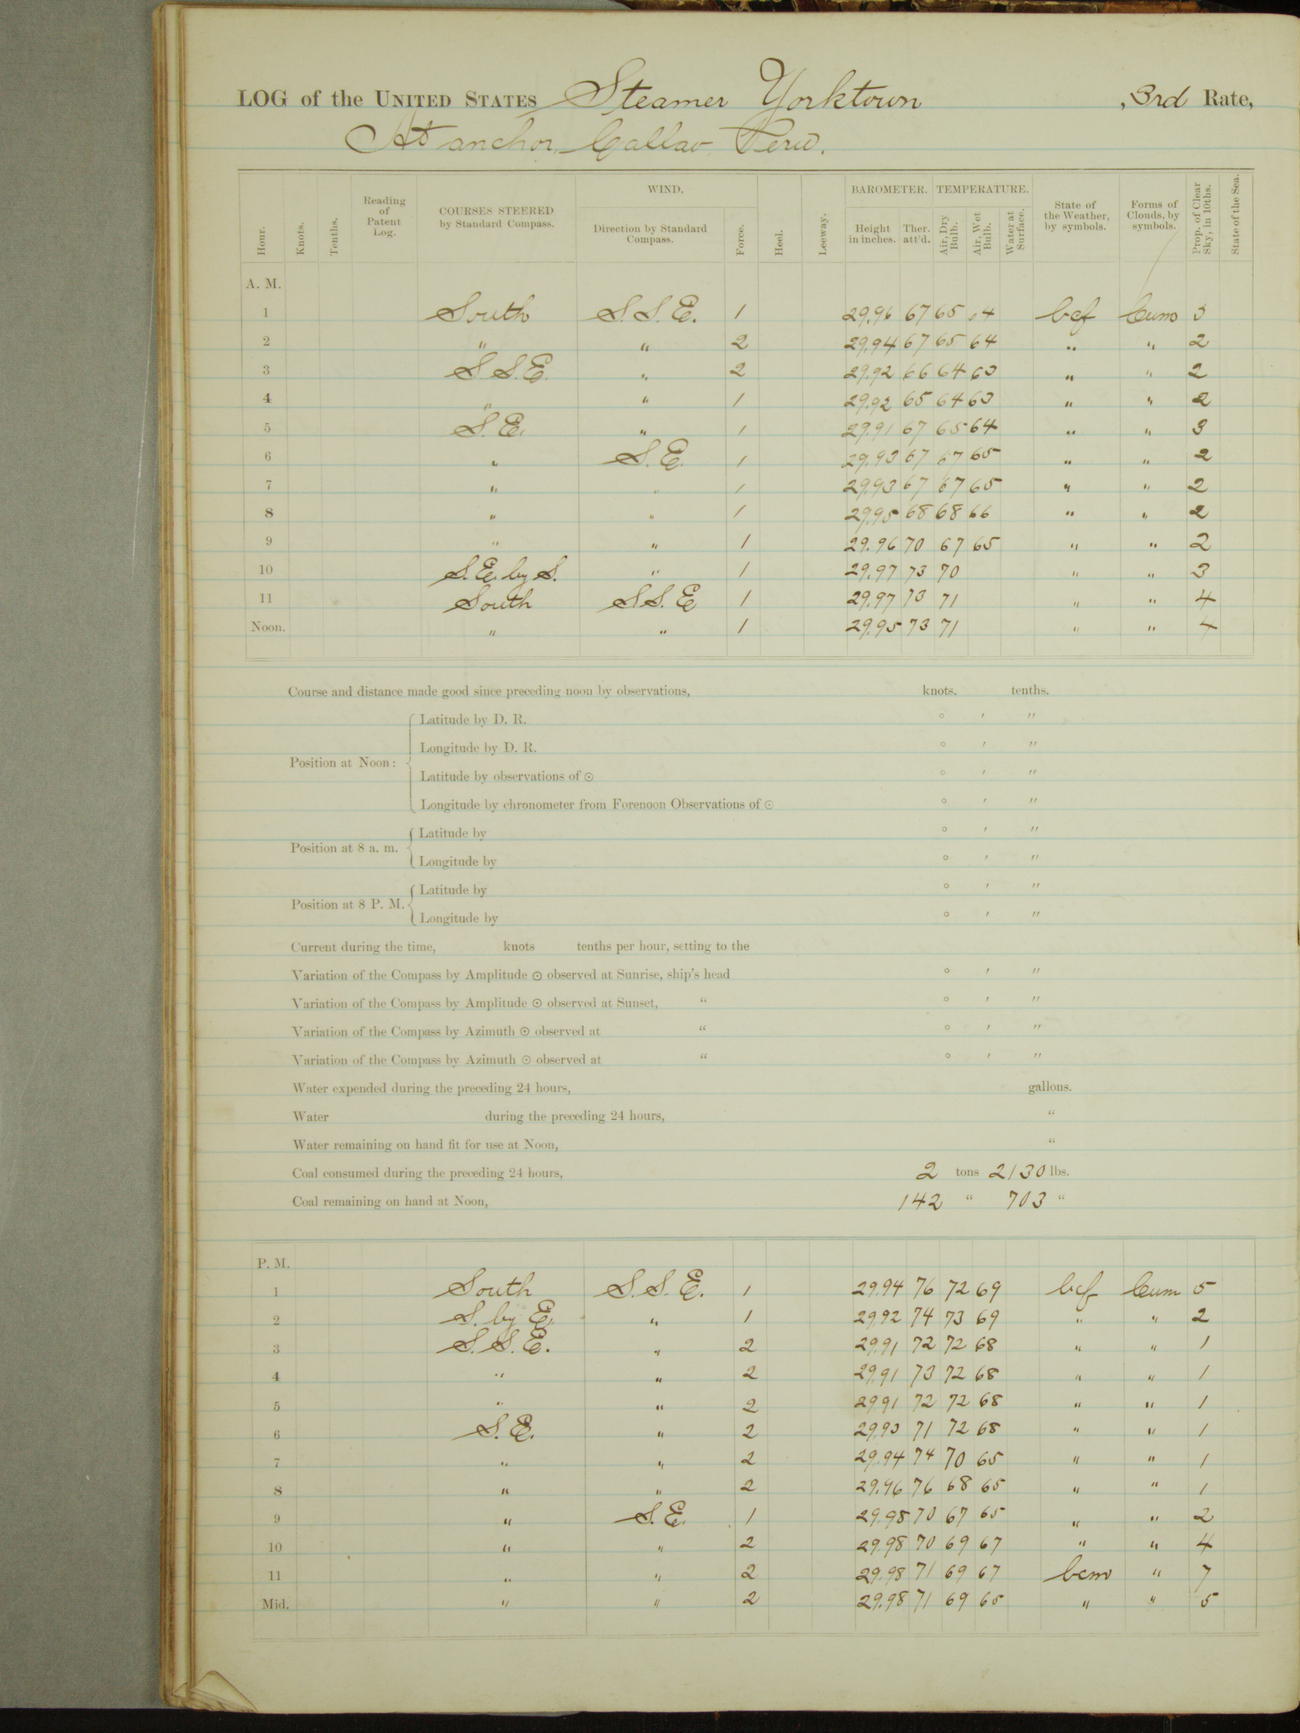 LOG of the UNITED STATES Steamer Yorktown , 3rd Rate,
At anchor, Callao Peru.
Hour. Knots. Tenths. Reading of Patent Log. COURSES STEERED by Standard Compass. WIND. Direction by Standard Compass. Force. Heel. Leeway. BAROMETER. Height in inches. Ther. att'd. TEMPERATURE. Air, Dry Bulb. Air, Wet Bulb. Water at Surface. State of the Weather, by symbols. Forms of Clouds, by symbols. Prop. of Clear Sky, in 10ths. State of the Sea.
A. M.
1 South S.S.E. 1 29.96 67 65 64 bcf Cum 3
2 " " 2 29.94 67 65 64 " " 2
3 S.S.E. " 2 29.92 66 64 63 " " 2
4 " " 1 29.92 65 64 63 " " 2
5 S.E. " 1 29.91 67 65 64 " " 3
6 " S.E. 1 29.93 67 67 65 " " 2
7 " " 1 29.93 67 67 65 " " 2
8 " " 1 29.95 68 68 66 " " 2
9 " " 1 29.96 70 67 65 " " 2
10 S.E. by S. " 1 29.97 73 70 " " 3
11 South S.S.E 1 29.97 73 71 " " 4
Noon. " " 1 29.95 73 71 " " 4
Course and distance made good since preceding noon by observations, knots. tenths.
Position at Noon:
Latitude by D. R. ° ′ ″
Longitude by D. R. ° ′ ″
Latitude by observations of ☉ ° ′ ″
Longitude by chronometer from Forenoon Observations of ☉ ° ′ ″
Position at 8 a. m.
Latitude by ° ′ ″
Longitude by ° ′ ″
Position at 8 P. M.
Latitude by ° ′ ″
Longitude by ° ′ ″
Current during the time, knots tenths per hour, setting to the
Variation of the Compass by Amplitude ☉ observed at Sunrise, ship's head ° ′ ″
Variation of the Compass by Amplitude ☉ observed at Sunset, " ° ′ ″
Variation of the Compass by Azimuth ☉ observed at " ° ′ ″
Variation of the Compass by Azimuth ☉ observed at " ° ′ ″
Water expended during the preceding 24 hours, gallons.
Water during the preceding 24 hours, "
Water remaining on hand fit for use at Noon, "
Coal consumed during the preceding 24 hours, 2 tons 2130 lbs.
Coal remaining on hand at Noon, 142 " 703 "
P. M.
1 South S.S.E. 1 29.94 76 72 69 bcf Cum 5
2 S. by E. " 1 29.92 74 73 69 " " 2
3 S.S.E. " 2 29.91 72 72 68 " " 1
4 " " 2 29.91 73 72 68 " " 1
5 " " 2 29.91 72 72 68 " " 1
6 S.E. " 2 29.93 71 72 68 " " 1
7 " " 2 29.94 74 70 65 " " 1
8 " " 2 29.96 76 68 65 " " 1
9 " S.E. 1 29.98 70 67 65 " " 2
10 " " 2 29.98 70 69 67 " " 4
11 " " 2 29.98 71 69 67 bcm " 7
Mid. " " 2 29.98 71 69 65 " " 5